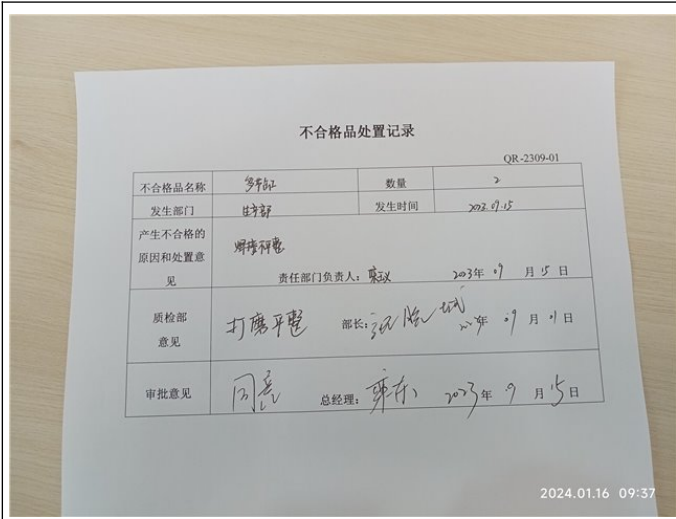 不合格品处置记录
QR-2309-01
不合格品名称 数量 2
发生部门 生产部 发生时间 2023.09.15
产生不合格的
原因和处置意
见
焊接不平整
责任部门负责人: 2023年 09 月 15 日
质检部
意见
打磨平整 部长: 年 09 月 日
审批意见 同意 总经理: 2023年 9 月 15 日
2024.01.16 09:37